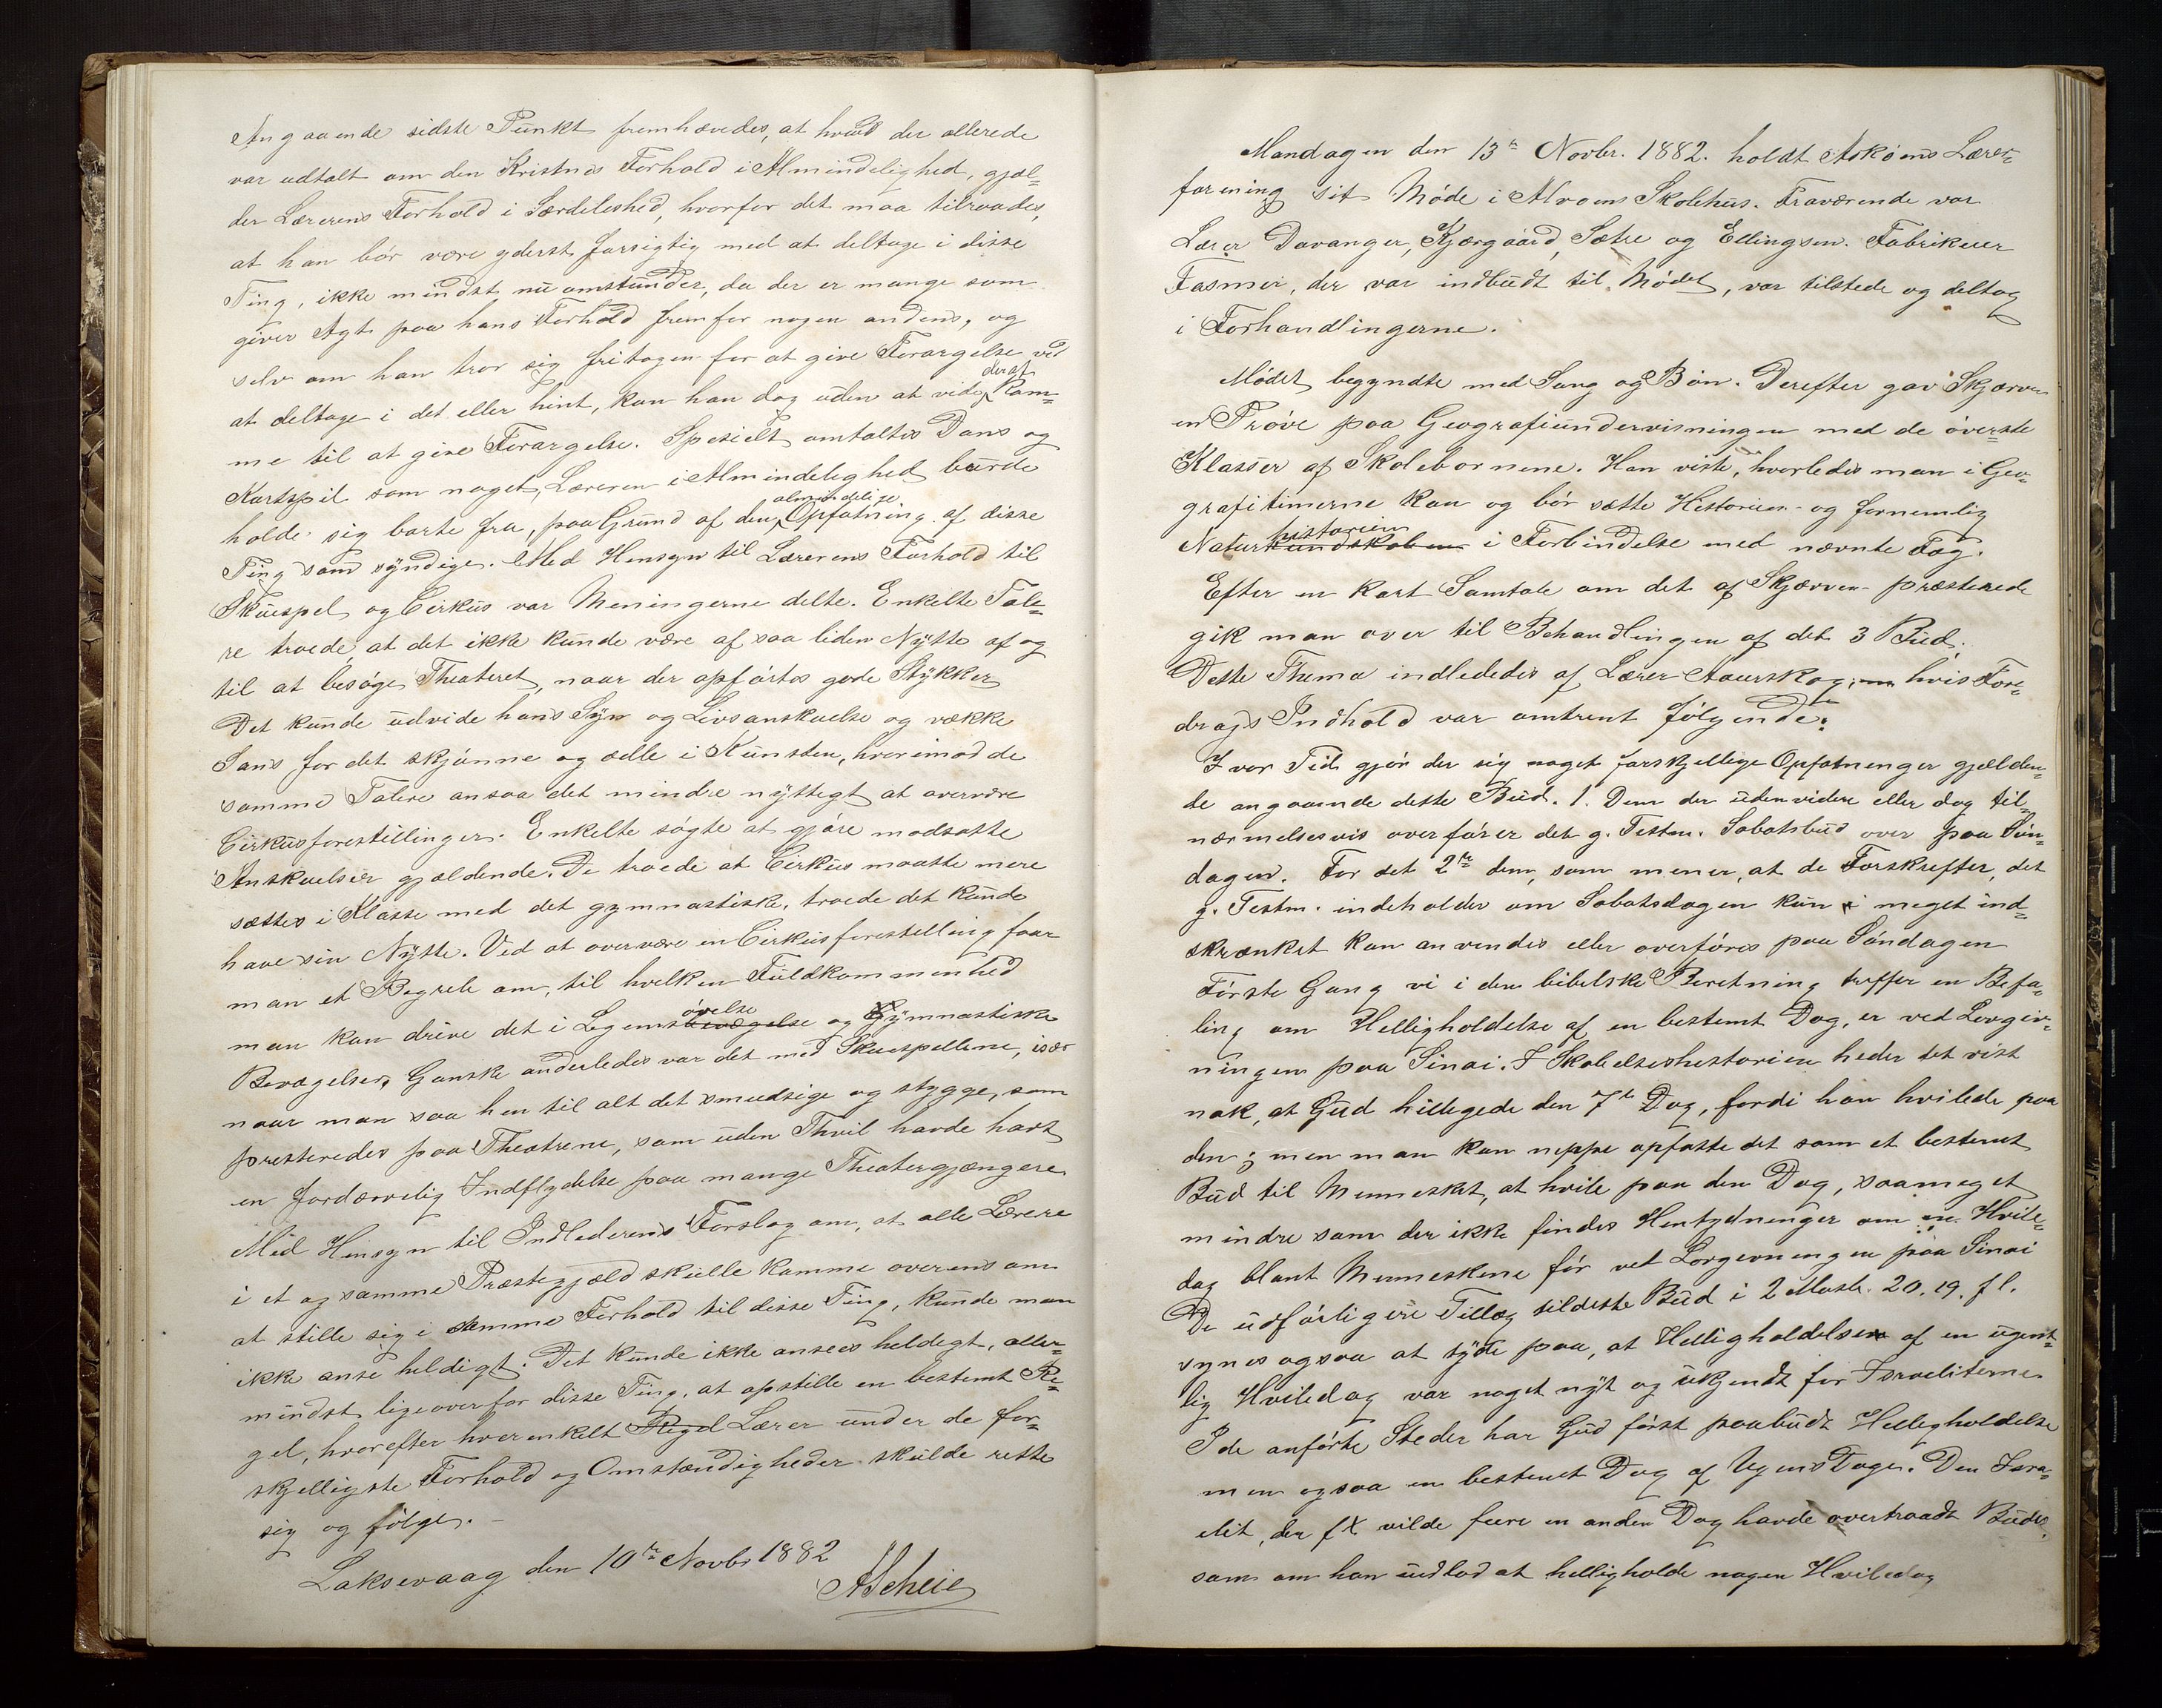 Angaaende sidste Punkt fremhævedes, at hvad der allerede
var udtalt om den Kristnes Forhold i Almindelighed, gjæl-
der Lærerens Forhold i Særdeleshed, hvorfor det maa tilraades,
at han bør være yderst forsigtig med at deltage i disse
Ting, ikke mindst nu omstunder, da der er mange som
giver Agt paa hans Forhold fremfor nogen andens, og
selv om han tror sig fritagen for at give Forargelse ved
at deltage i det eller hint, kan han dog uden at vide deraf kom-
me til at give Forargelse. Specielt omtaltes Dans og
Kortspil som noget, Læreren i Almindelighed burde
holde sig borte fra, paa Grund af den almindelige Opfatning af disse
Ting som syndige. Med Hensyn til Lærerens Forhold til
Skuespel og Cirkus var Meningerne delte. Enkelte Tale-
re troede, at det ikke kunde være af saa liden Nytte af og
til at besøge Theateret, naar der opførtes gode Stykker
Det kunde udvide hans Syn og Livsanskuelse og vække
Sans for det skjønne og ædle i Kunsten, hvorimod de
samme Talere ansaa det mindre nyttegt at overvære
Cirkusforestillinger. Enkelte søgte at gjøre modsatte
Anskuelser gjældende. De troede at Cirkus maatte mere
sættes i Klasse med det gymnastiske, troede det kunde
have sin Nytte. Ved at overvære en Cirkusforestelling faar
man et Begreb om, til hvilken Fuldkommenhed
man kan drive det i Legemsbevægelse øvelse og Gymnastiske
Bevægelser. Ganske anderledes var det med Skuespellene, især
naar man saa hen til alt det smudsige og stygge, som
presteredes paa Theatrene, som uden Thvil havde havt
en fordærvelig Indflydelse paa mange Theatergjængere
Med Hensyn til Indlederens Forslag om, at alle Lærere
i et og samme Præstegjæld skulle komme overens om
at stille sig i samme Forhold til disse Ting, kunde man
ikke anse heldigt. Det kunde ikke ansees heldegt, aller-
mindst ligeoverfor disse Ting, at opstille en bestemt Re-
gel, hvorefter hver enkelt Regel Lærer under de for-
skjelligste Forhold og Omstændigheder skulde rette
sig og følge.
Laksevaag den 10de Novbr 1882
AScheie
Mandagen den 13de Novbr. 1882. holdt Askøens Lærer-
forening sit Møde i Alvøens Skolehus. Fraværende var
Lærer Davanger, Kjærgaard, Sætre og Ellingsen. Fabrikeier
Fasmer, der var indbudt til Mødet, var tilstede og deltog
i Forhandlingerne.
Mødet begyndte med Sang og Bøn. Derefter gav Skjærven
en Prøve paa Geografiundervisningen med de øverste
Klasser af Skolebørnene. Han viste, hvorledes man i Geo-
grafitimerne kan og bør sætte Historien- og fornemlig
Naturkundskaben historien i Forbindelse med nævnte Fag.
Efter en kort Samtale om det af Skjærven præsterede
gik man over til Behandlingen af det 3 Bud.
Dette Thema indlededes af Lærer Aaurskog, hvis Fore-
drags Indhold var omtrent følgende:
I vor Tid gjør der sig noget forskjellige Opfatninger gjælden-
de angaaende dette Bud. 1. Dem der uden videre eller dog til-
nærmelsesvis overfører det g. Testm. Sabatsbud over paa Søn-
dagen. For det 2de dem, som mener, at de Forskrefter, det
g. Testm. indeholder om Sabatsdagen kun i meget ind-
skrænket kan anvendes eller overføres paa Søndagen
Første Gang vi i den bibelske Beretning treffer en Befa-
ling om Helligholdelse af en bestemt Dag, er ved Lovgiv-
ningen paa Sinai. I Skabelseshistorien heder det vist
nok, at Gud hellegede den 7de Dag, fordi han hvilede paa
den; men man kan neppe opfatte det som et bestemt
Bud til Mennesket, at hvile paa den Dag, saameget
mindre som der ikke findes Hentydninger om en Hvile-
dag blant Menneskene før ved Lovgevningen paa Sinai
De udførligere Tillæg til dette Bud i 2 Moseb. 20. 19. fl.
synes ogsaa at tyde paa, at Helligholdelsen af en ugent-
lig Hviledag var noget nyt og ukjendt for Israeliterne
I de anførte Steder har Gud først paabudt Helligholdelse
men ogsaa en bestemt Dag af Ugens Dage. Den Isra-
elit, der fX vilde feire en anden Dag havde overtraadt Budet,
som om han undlod at helligholde nogen Hviledag